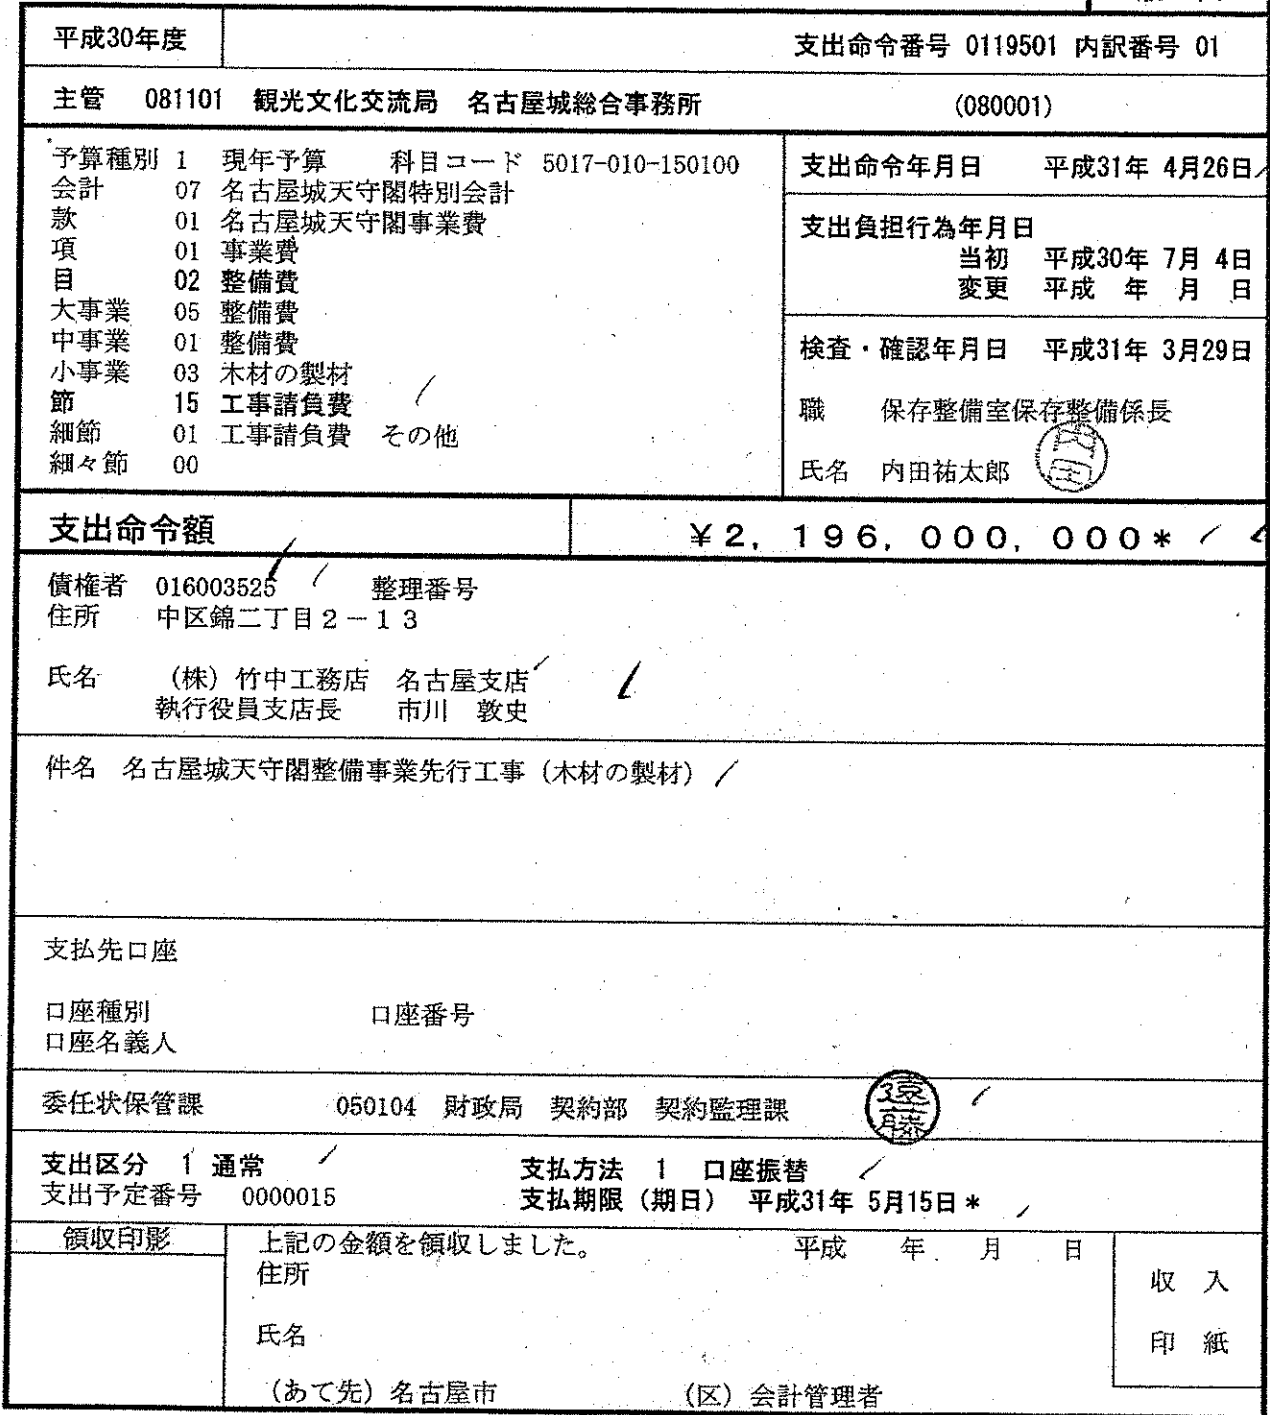 平成30年度 支出命令番号 0119501 内訳番号 01
主管 081101 観光文化交流局 名古屋城総合事務所 (080001)
予算種別 1 現年予算 科目コード 5017-010-150100
会計 07 名古屋城天守閣特別会計
款 01 名古屋城天守閣事業費
項 01 事業費
目 02 整備費
大事業 05 整備費
中事業 01 整備費
小事業 03 木材の製材
節 15 工事請負費
細節 01 工事請負費 その他
細々節 00
支出命令年月日 平成31年 4月26日
支出負担行為年月日
当初 平成30年 7月 4日
変更 平成 年 月 日
検査・確認年月日 平成31年 3月29日
職 保存整備室保存整備係長
氏名 内田祐太郎
内田
支出命令額 ¥2,196,000,000*
債権者 016003525 整理番号
住所 中区錦二丁目2-13
氏名 (株)竹中工務店 名古屋支店
執行役員支店長 市川 敦史
件名 名古屋城天守閣整備事業先行工事(木材の製材)
支払先口座
口座種別 口座番号
口座名義人
委任状保管課 050104 財政局 契約部 契約監理課
遠藤
支出区分 1 通常 支払方法 1 口座振替
支出予定番号 0000015 支払期限(期日) 平成31年 5月15日*
領収印影 上記の金額を領収しました。 平成 年 月 日
住所
氏名
(あて先)名古屋市 (区)会計管理者
収入
印紙